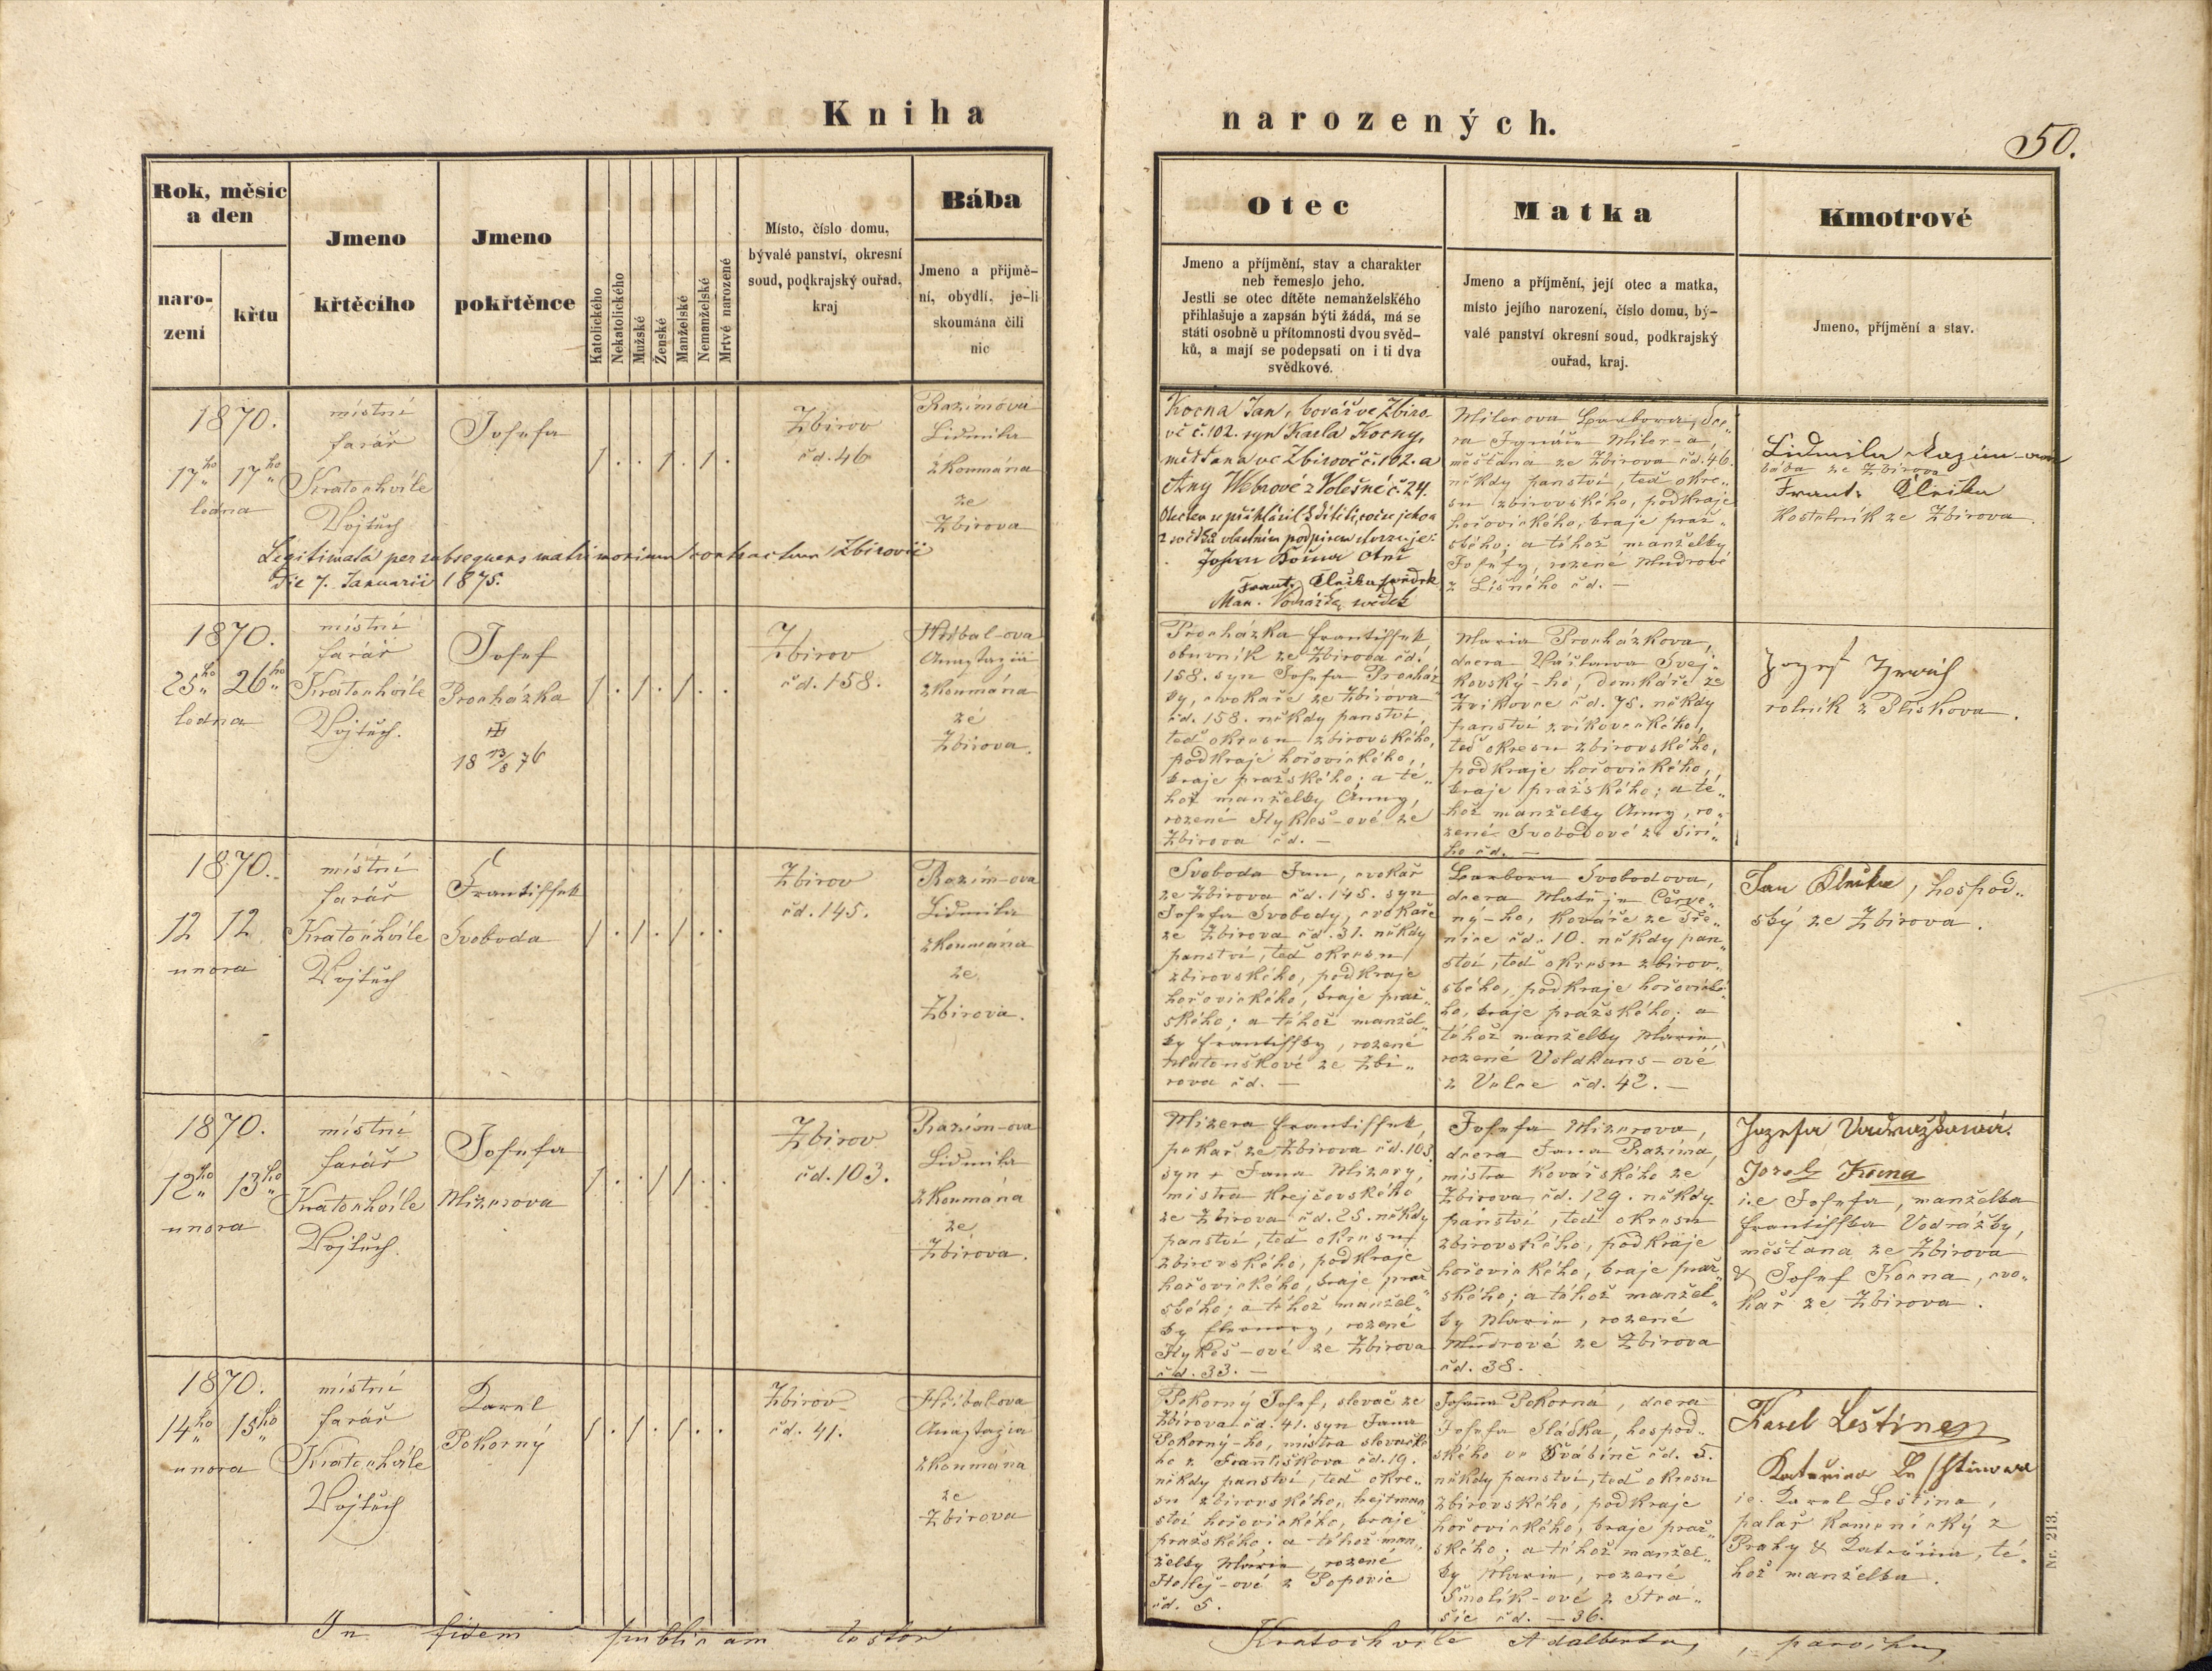 Kniha
narozených.
50.
Rok, měsíc
a den
naro-
zení
křtu
Jmeno
křtěcího
Jmeno
pokřtěnce
Katolického
Nekatolického
Mužské
Ženské
Manželské
Nemanželské
Mrtvé narozené
Místo, číslo domu,
bývalé panství, okresní
soud, podkrajský ouřad,
kraj
Bába
Jmeno a přijmě-
ní, obydlí, je-li
skoumána čili
nic
Otec
Jmeno a příjmění, stav a charakter
neb řemeslo jeho.
Jestli se otec dítěte nemanželského
přihlašuje a zapsán býti žádá, má se
státi osobně u přítomnosti dvou svěd-
ků, a mají se podepsati on i ti dva
svědkové.
Matka
Jmeno a příjmění, její otec a matka,
místo jejího narození, číslo domu, bý-
valé panství okresní soud, podkrajský
ouřad, kraj.
Kmotrové
Jmeno, příjmění a stav.
1870.
17ho 17ho
ledna
místní
farář
Kratochvíle
Vojtěch
Josefa
Zbirov
čd. 46
Razimová
Lidmila
zkoumána
ze
Zbirova
Legitimata per subsequens matrimonium contractum Zbirovii
Die 7. Januarii 1875.
Kocna Jan, kovář ve Zbiro-
vě č. 102. syn Karla Kocny,
měšťana ve Zbirově č. 102. a
Any Webrové z Volešné č. 24.
Johan Kocna Otec
Frant. Kleika svědek
Man. Vodrážka svědek
Milerova Barbora, dce-
ra Ignáce Miler-a,
měšťana ze Zbirova čd. 46.
někdy panství, teď okre-
su zbirovského, podkraje
hořovického, kraje praž-
ského; a téhož manželky
Josefy, rozené Mudrové
z Líšného čd. —
Lidmila Razim-ova
bába ze Zbirova
Frant. Kleika
Kostelník ze Zbirova.
1870.
25ho 26ho
ledna
místní
farář
Kratochvíle
Vojtěch.
Josef
Procházka
18 13/8 76
Zbirov
čd. 158.
Hříbal-ova
Anastazia
zkoumána
ze
Zbirova.
Procházka Františsek,
obuvník ze Zbirova čd.
158. syn Josefa Procház
ky, cvokaře ze Zbirova
čd. 158. někdy panství,
teď okresu zbirovského,
podkraje hořovického,
kraje pražského; a té-
hož manželky Anny,
rozené Hykleš-ové ze
Zbirova čd. —
Maria Procházkova,
dcera Václava Svej-
kovský-ho, domkáře ze
Zvíkovce čd. 75. někdy
panství zvíkoveckého,
teď okresu zbirovského,
podkraje hořovického,
kraje pražského; a té-
hož manželky Anny, ro-
zené Svobodové ze Siré-
ho čd. —
rolník z Plískova.
1870.
12 12
unora
místní
farář
Kratochvíle
Vojtěch
Františsek
Svoboda
Zbirov
čd. 145.
Razim-ova
Lidmila
zkoumána
ze
Zbirova.
Svoboda Jan, cvokář
ze Zbirova čd. 145. syn
Josefa Svobody, cvokaře
ze Zbirova čd. 31. někdy
panství, teď okresu
zbirovského, podkraje
hořovického, kraje praž-
ského; a téhož manžel-
ky Františsky, rozené
Matouškové ze Zbi-
rova čd. —
Barbora Svobodova,
dcera Matěje Červe-
ný-ho, kováře ze Tře-
nice čd. 10. někdy pan-
ství, teď okresu zbirov-
ského, podkraje hořovické-
ho, kraje pražského; a
téhož manželky Marie,
rozené Voldhans-ové
z Volce čd. 42. —
Jan Kleika, hospod-
ský ze Zbirova.
1870.
12ho 13ho
unora
místní
farář
Kratochvíle
Vojtěch.
Josefa
Mizerova
Zbirov
čd. 103.
Razim-ova
Lidmila
zkoumána
ze
Zbirova.
Mizera Františsek,
pekař ze Zbirova čd. 103.
syn + Jana Mizery,
mistra krejčovského
ze Zbirova čd. 25. někdy
panství, teď okresu
zbirovského, podkraje
hořovického, kraje praž-
ského; a téhož manžel-
ky Eleonory, rozené
Hykeš-ové ze Zbirova
čd. 33. —
Josefa Mizerova,
dcera Jana Razima,
mistra kovářského ze
Zbirova čd. 129. někdy
panství, teď okresu
zbirovského, podkraje
hořovického, kraje praž-
ského; a téhož manžel-
ky Marie, rozené
Mudrové ze Zbirova
čd. 38.
Jozefa Vodrážková.
Jozef Kocna
i.e Josefa, manželka
Františka Vodrážky,
měšťana ze Zbirova
& Josef Kocna, cvo-
kař ze Zbirova.
1870.
14ho 15ho
unora
místní
farář
Kratochvíle
Vojtěch
Karel
Pokorný
Zbirov
čd. 41.
Hříbal-ova
Anastazia
zkoumána
ze
Zbirova
Pokorný Josef, slevač ze
Zbirova čd. 41. syn Jana
Pokorný-ho, mistra slevačské
ho z Františkova čd. 19.
někdy panství, teď okre-
su zbirovského, hejtman
ství hořovického, kraje
pražského; a téhož man-
želky Marie, rozené
Hollej-ové z Popovic
čd. 5.
Johana Pokorná, dcera
Josefa Sládka, hospod-
ského ve Švábíně čd. 5.
někdy panství, teď okresu
zbirovského, podkraje
hořovického, kraje praž-
ského; a téhož manžel-
ky Marie, rozené
Smolík-ové z Stra-
šic čd. — 36.
Karel Leština
Kateřina Leschtinova
ie. Karel Leština,
palař kamenický z
Prahy & Kateřina, té-
hož manželka.
Nr. 213.
In fidem publicam testor
Kratochvíle Adalbertus, parochus